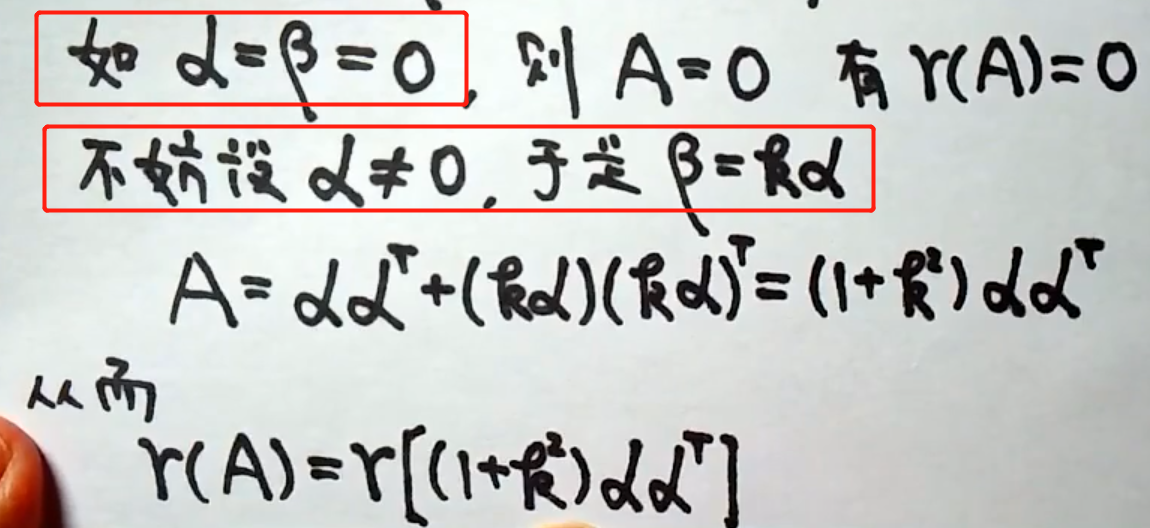 如 α=β=0, 则 A=0 有 r(A)=0
不妨设 α≠0, 于是 β=kα
A=ααᵀ+(kα)(kα)ᵀ=(1+k²)ααᵀ
从而
r(A)=r[(1+k²)ααᵀ]